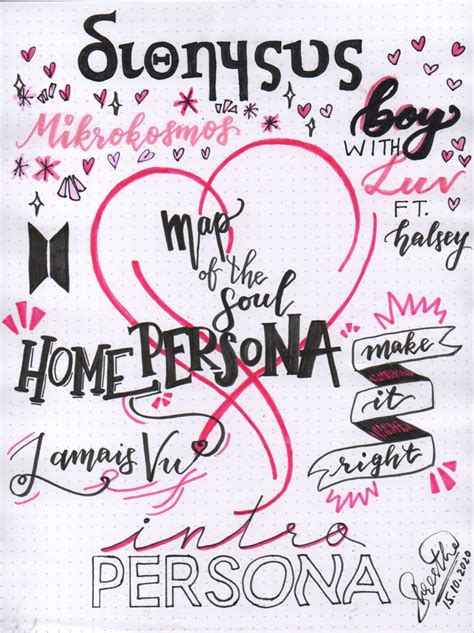 διonysus
Mikrokosmos
boy
WITH
Luv
FT.
halsey
map
of the
soul
PERSONA
HOME
make
it
right
Jamais Vu
intro
PERSONA
15.10.2020